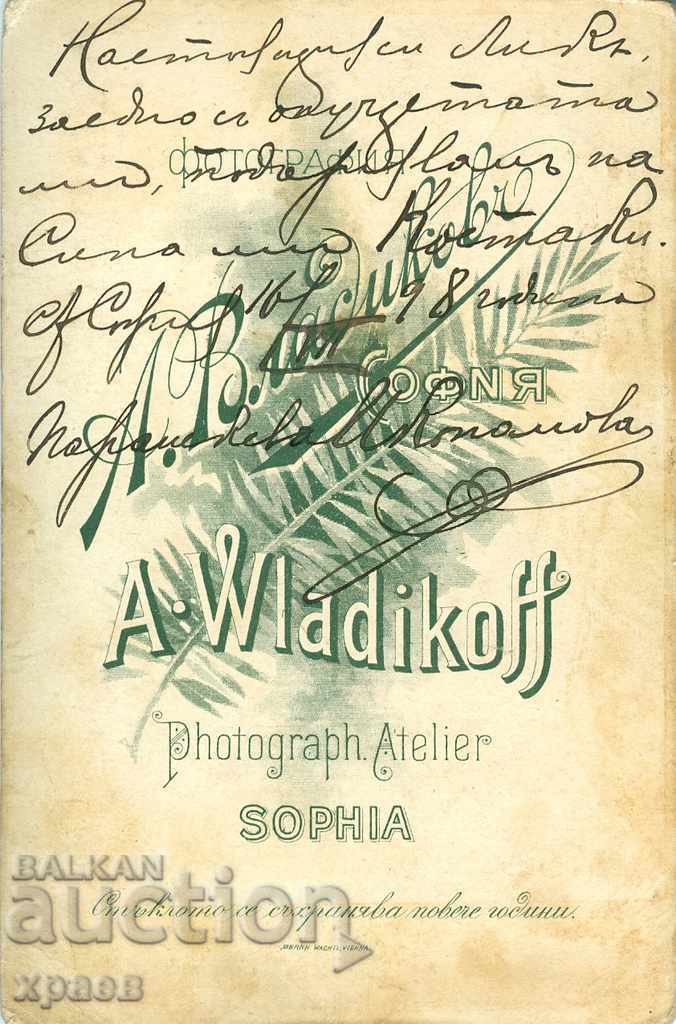 Настоящия си Ликъ,
заедно съ внучетата
ми, подарявамъ на
Сина ми Костаки.
София 16/ 98 година
Параскева Икономова
ФОТОГРАФИЯ
А. Владиковъ
СОФИЯ
A. Wladikoff
Photograph. Atelier
SOPHIA
Стъклото се съхранява повече години.
BERNH. WACHTL, VIENNA.
BALKAN
auction
храов